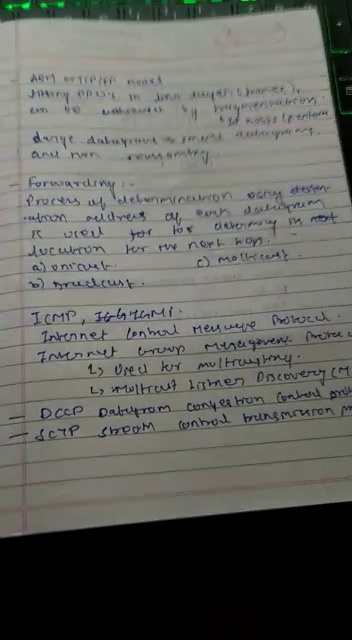 - ARM of TCP/IP model
in data layer (frames),
can be by fragmentation.
by hosts (perform
datagrams → small datagrams
and non reassembly
- Forwarding :-
Process of determination using destin-
ation address of each datagram
is used for to determine in next
location for the next hop.
a) unicast. c) multicast.
b) broadcast.
ICMP, IGMP.
Internet Control Message Protocol.
Internet Group Management Protoco
↳ Used for multicasting.
↳ Multicast Listner Discovery (M
- DCCP Datagram congestion control pro
- SCTP Stream control transmission